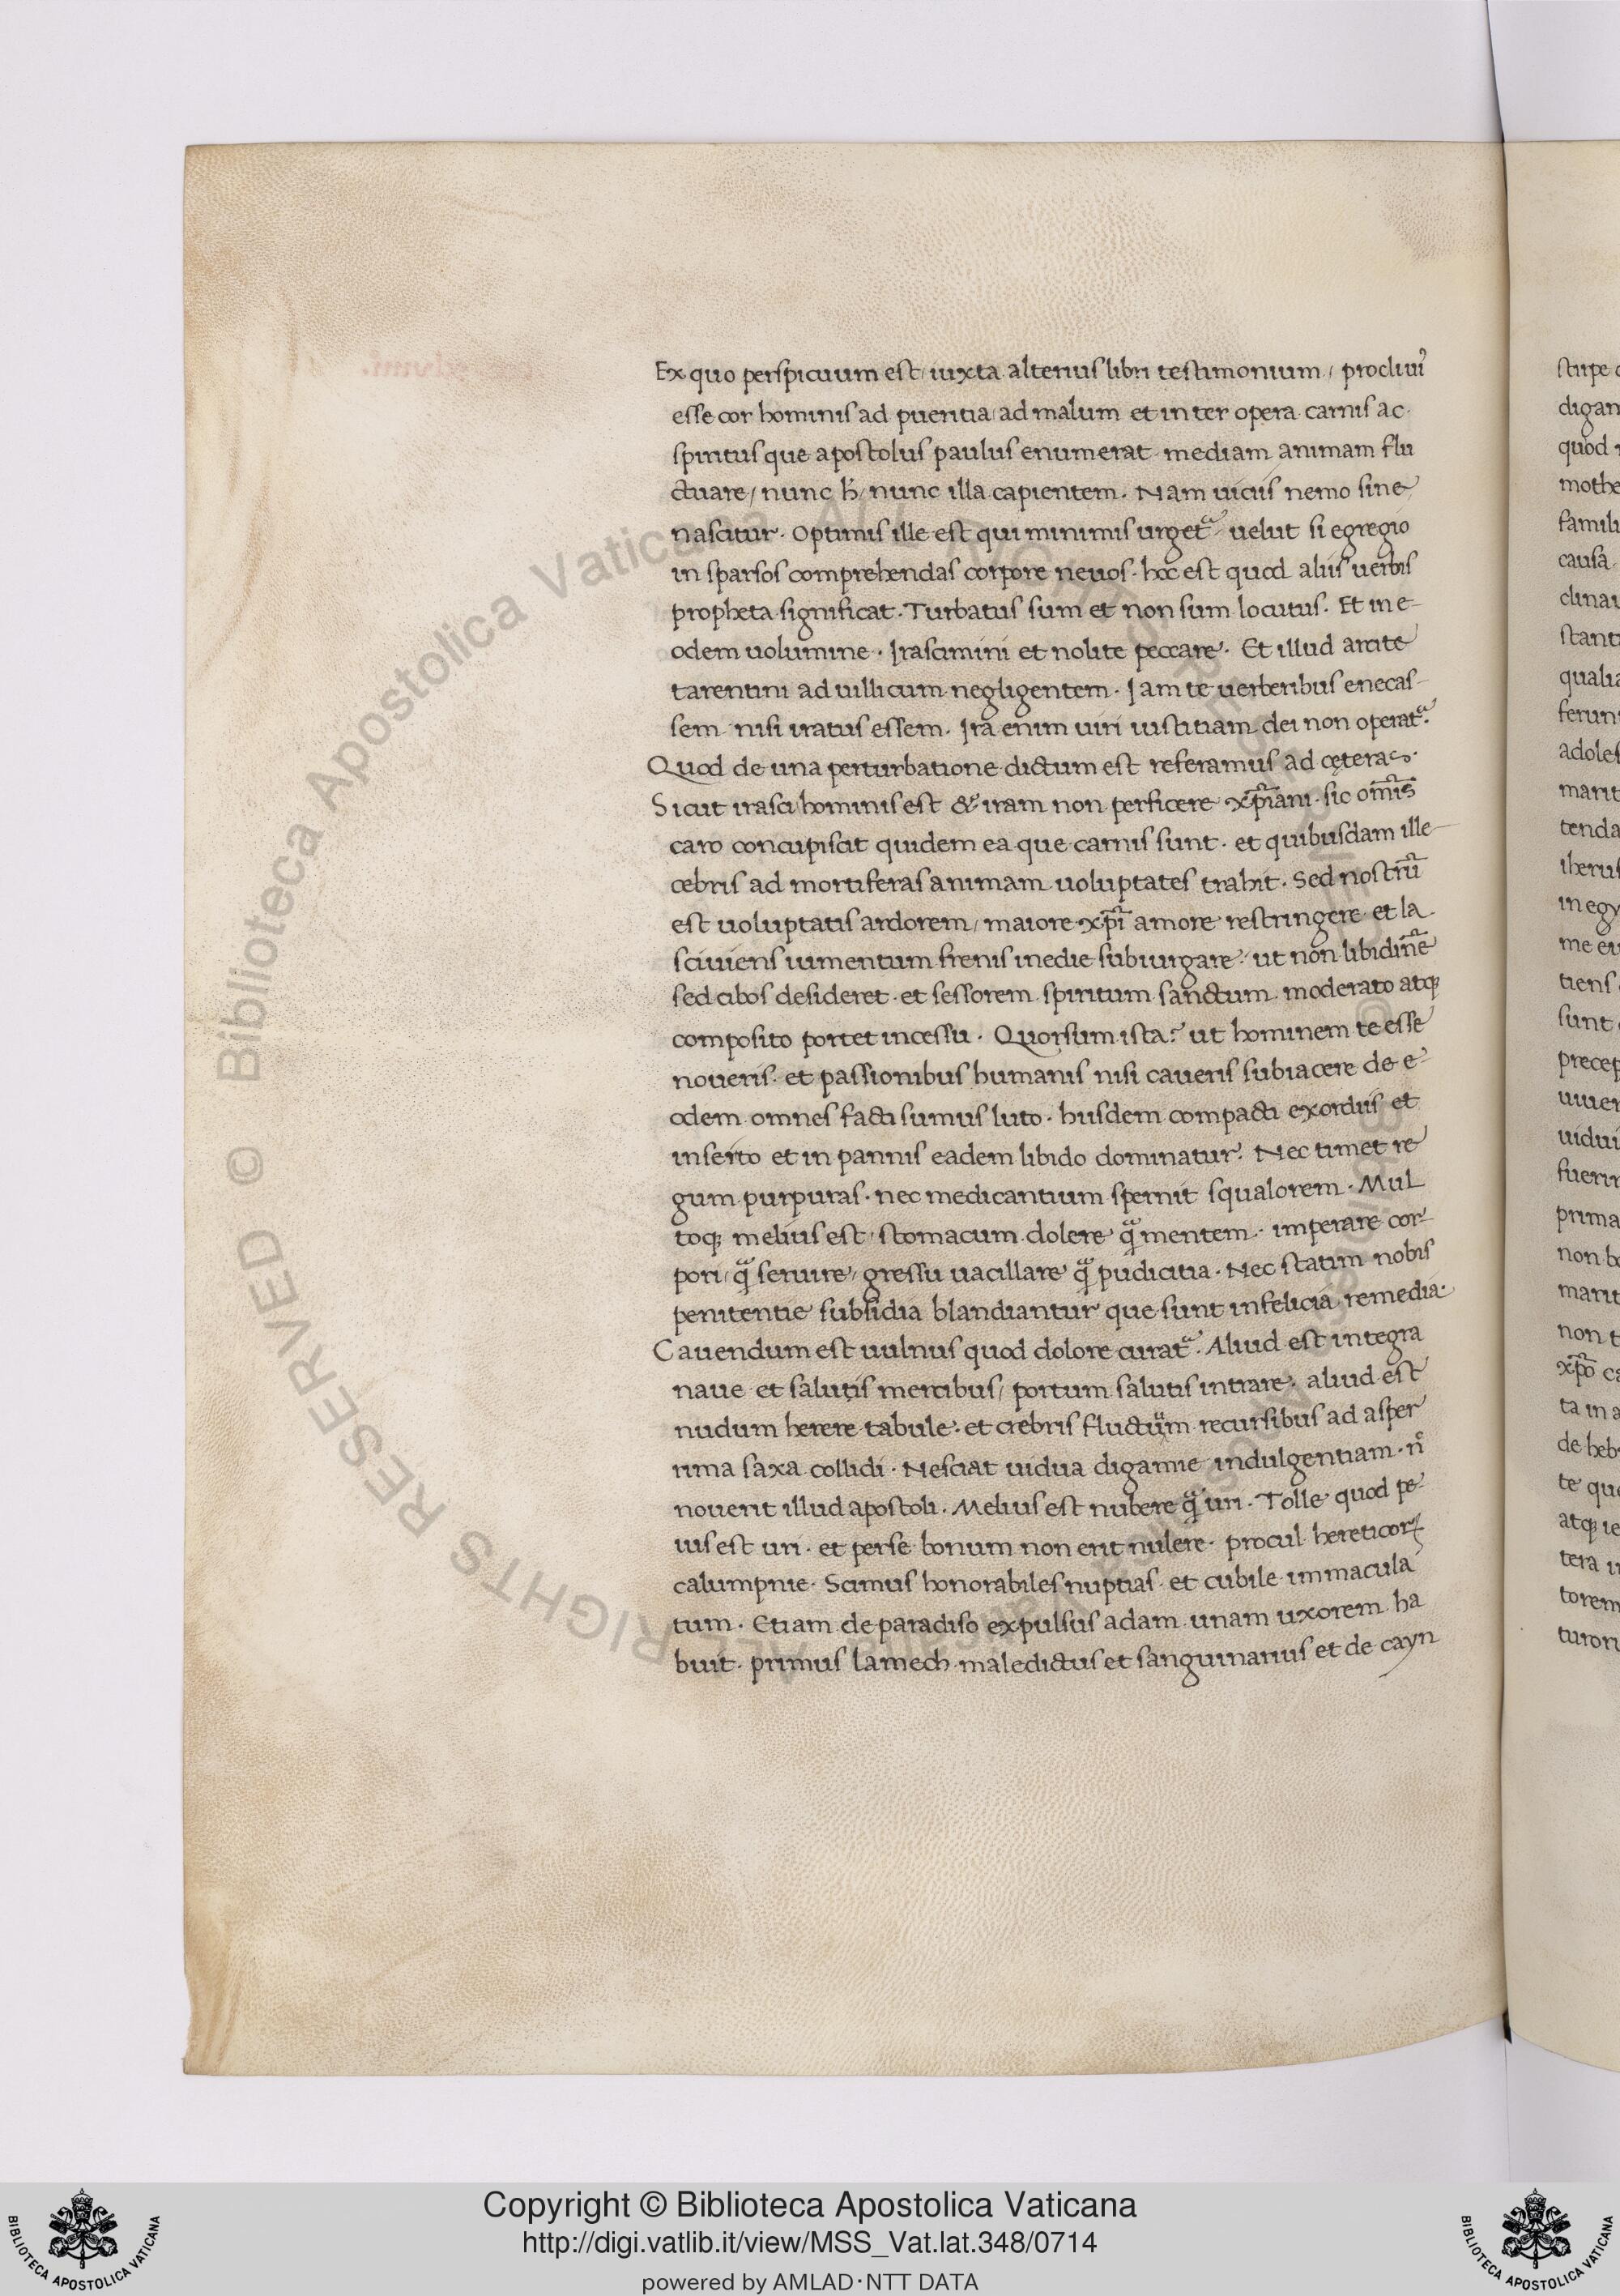 Ex quo perspicuum est, iuxta alterius libri testimonium, procliui
esse cor hominis ad pueritia, ad malum et inter opera carnis ac
spiritus que apostolus paulus enumerat mediam animam flu
ctuare, nunc h̄, nunc illa capientem. Nam uicus nemo sine
nascitur. Optimis ille est qui minimis urget᷑ uelut si egregio
in sparsos comprehendas corpore neuos. hoc est quod aliis uerbis
propheta significat. Turbatus sum et non sum locutus. Et in e-
odem uolumine. Irascimini et nolite peccare. Et illud arcite
tarentini ad uillicum negligentem. Iam te uerberibus enecas-
sem nisi iratus essem. Ira enim uiri iustitiam dei non operat᷑.
Quod de una perturbatione dictum est referamus ad cęteras.
Sicut irasci hominis est & iram non perficere xp̄iani. sic om̄is
caro concupiscit quidem ea que carnis sunt. et quibusdam ille-
cebris ad mortiferas animam uoluptates trahit. Sed nostrū
est uoluptatis ardorem, maiore xp̄i amore restringere et la
sciuiens iumentum frenis inedie subiurgare. ut non libidinē
sed cibos desideret. et sessorem spiritum sanctum moderato atq;
composito portet incessu. Quorsum ista? ut hominem te esse
noueris. et passionibus humanis nisi caueris subiacere de e-
odem omnes facti sumus luto. hisdem compacti exordiis et
in serico et in pannis eadem libido dominatur. Nec timet re
gum purpuras. nec medicantium spernit squalorem. Mul
toq; melius est, stomacum dolere q̃ mentem. imperare cor-
pori, q̃ seruire, gressu uacillare q̃ pudicitia. Nec statim nobis
penitentie subsidia blandiantur que sunt infelicia remedia.
Cauendum est uulnus quod dolore curat᷑. Aliud est integra
naue et salutis mercibus, portum salutis intrare. aliud est
nudum herere tabule. et crebris fluctuum recursibus ad asper
rima saxa collidi. Nesciat uidua digamie indulgentiam. n̊
nouerit illud apostoli. Melius est nubere q̃ uri. Tolle quod pe-
ius est uri. et per se bonum non erit nubere. procul hereticoꝝ
calumpnie. Scimus honorabiles nuptias et cubile immacula
tum. Etiam de paradiso expulsus adam unam uxorem ha
buit. primus lamech maledictus et sanguinarius et de cayn
Copyright © Biblioteca Apostolica Vaticana
http://digi.vatlib.it/view/MSS_Vat.lat.348/0714
powered by AMLAD·NTT DATA